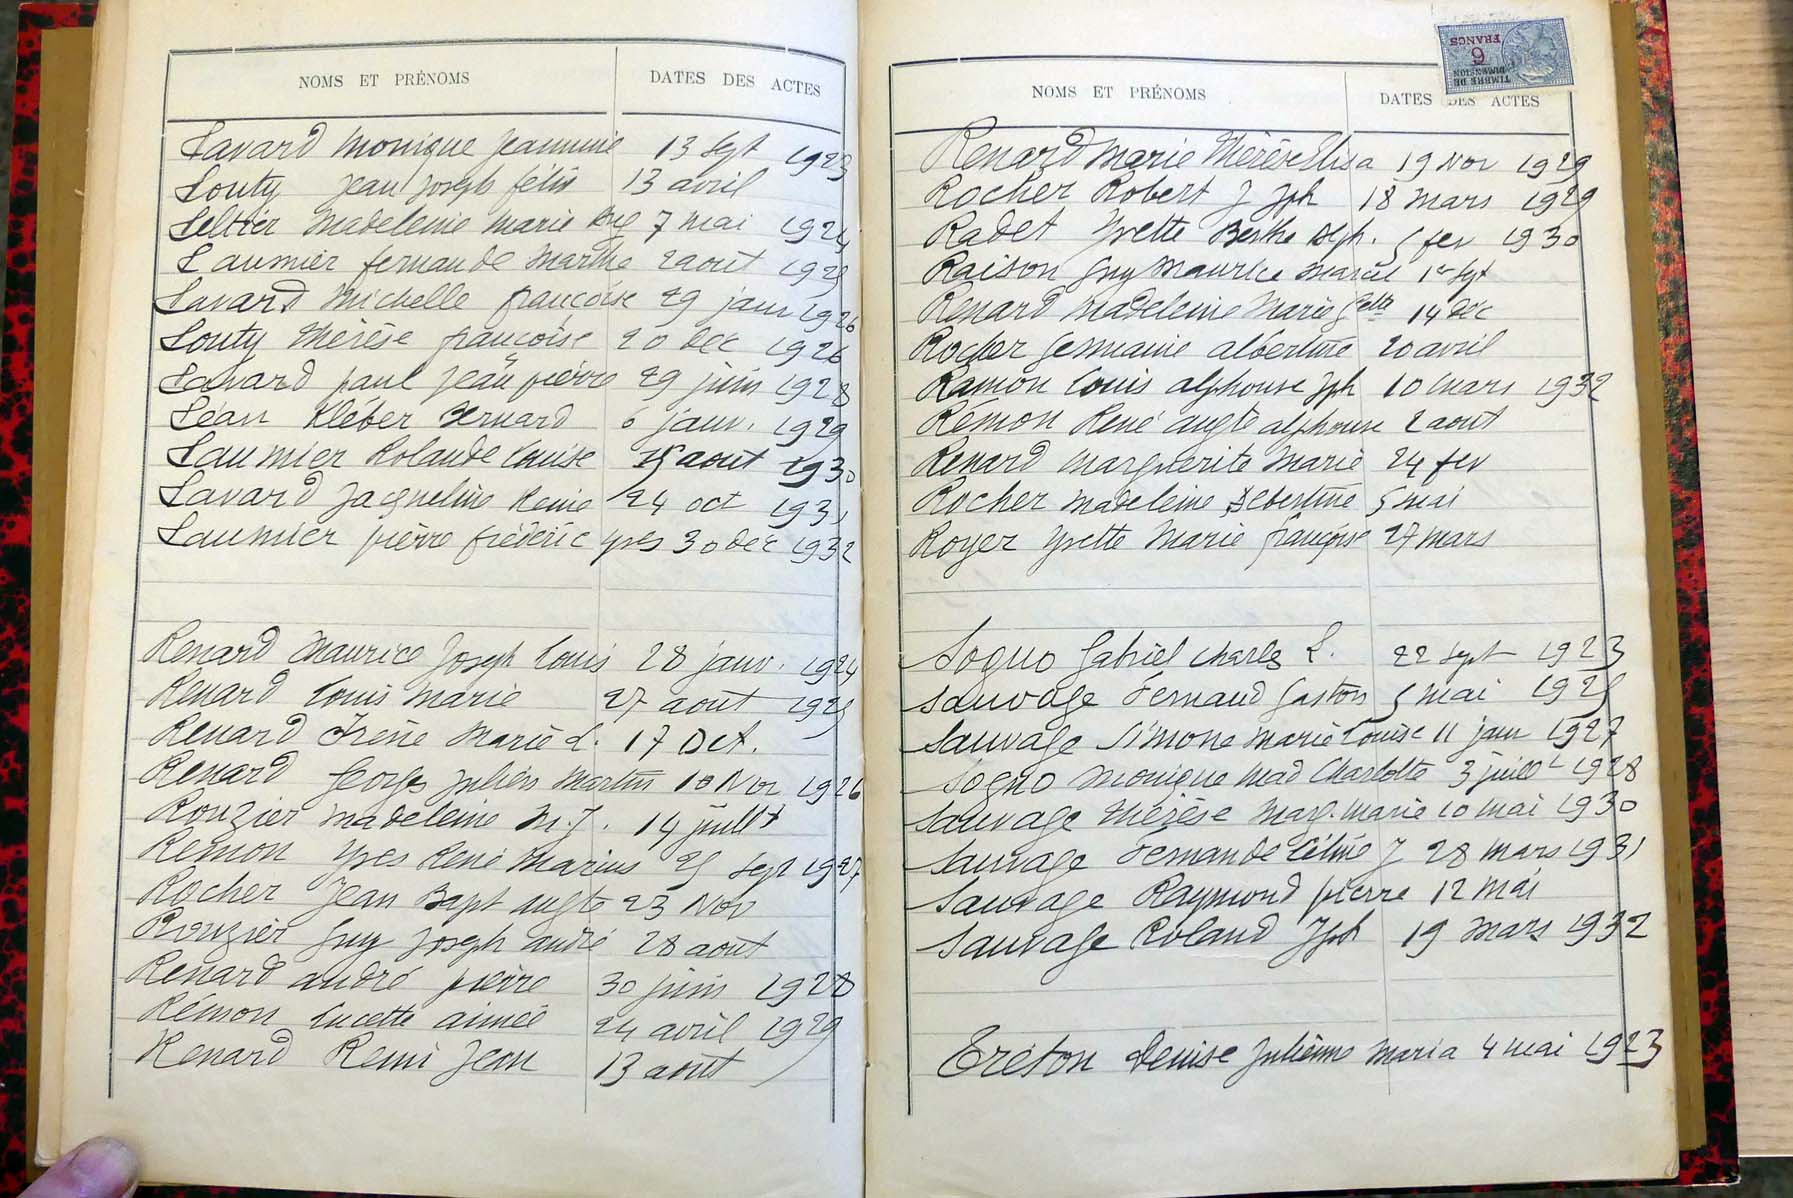 NOMS ET PRÉNOMS DATES DES ACTES
Lavard Monique Jeannine 13 Sept 1923
Louty Jean Joseph félix 13 avril
Leltier Madeleine Marie 7 mai 1924
Laumier fernande Marthe 2 août 1925
Lavard Michelle françoise 29 janv 1926
Louty Thérèse françoise 20 dec 1926
Lavard paul Jean pierre 29 juin 1928
Léan Kléber Bernard 6 janv. 1929
Laumier Rolande Louise août 1930
Lavard Jacqueline Renée 24 oct 1931
Laumier pierre frédéric yves 30 dec 1932
Renard Maurice Joseph Louis 28 janv. 1924
Renard Louis Marie 27 août 1925
Renard Irène Marie L. 17 Oct.
Renard Georges Julien Martin 10 Nov 1926
Rouzier Madeleine M.J. 14 juillt
Rémon Yves René Marius 25 Sept 1927
Rocher Jean Bapt augte 23 Nov
Rouzier Guy Joseph andré 28 août
Renard andré pierre 30 juin 1928
Rémon Lucette aimée 24 avril 1929
Renard Remi Jean 13 août
TIMBRE DE DIMENSION
6 FRANCS
NOMS ET PRÉNOMS DATES DES ACTES
Renard Marie Thérèse Elisa 19 Nov 1929
Rocher Robert J Jph 18 mars 1929
Radet Yvette Berthe 5 fev 1930
Raison Guy Maurice Marcel 1er Sept
Renard Madeleine Marie 14 dec
Rocher Germaine albertine 20 avril
Ramon Louis alphonse Jph 10 mars 1932
Rémon René augte alphonse 2 aout
Renard Marguerite Marie 24 fev
Rocher Madeleine 5 mai
Royer Yvette Marie françoise 27 mars
Sogno Gabriel Charles L. 22 Sept 1923
Sauvage Fernand Gaston 5 mai 1925
Sauvage Simone Marie Louise 11 janv 1927
Sogno Monique Mad Charlotte 3 juillt 1928
Sauvage Thérèse Marg. Marie 10 mai 1930
Sauvage Fernande Céline J 28 mars 1931
Sauvage Raymond pierre 12 mai
Sauvage Roland Jph 19 mars 1932
Tréton Denise Julienne Maria 4 mai 1923